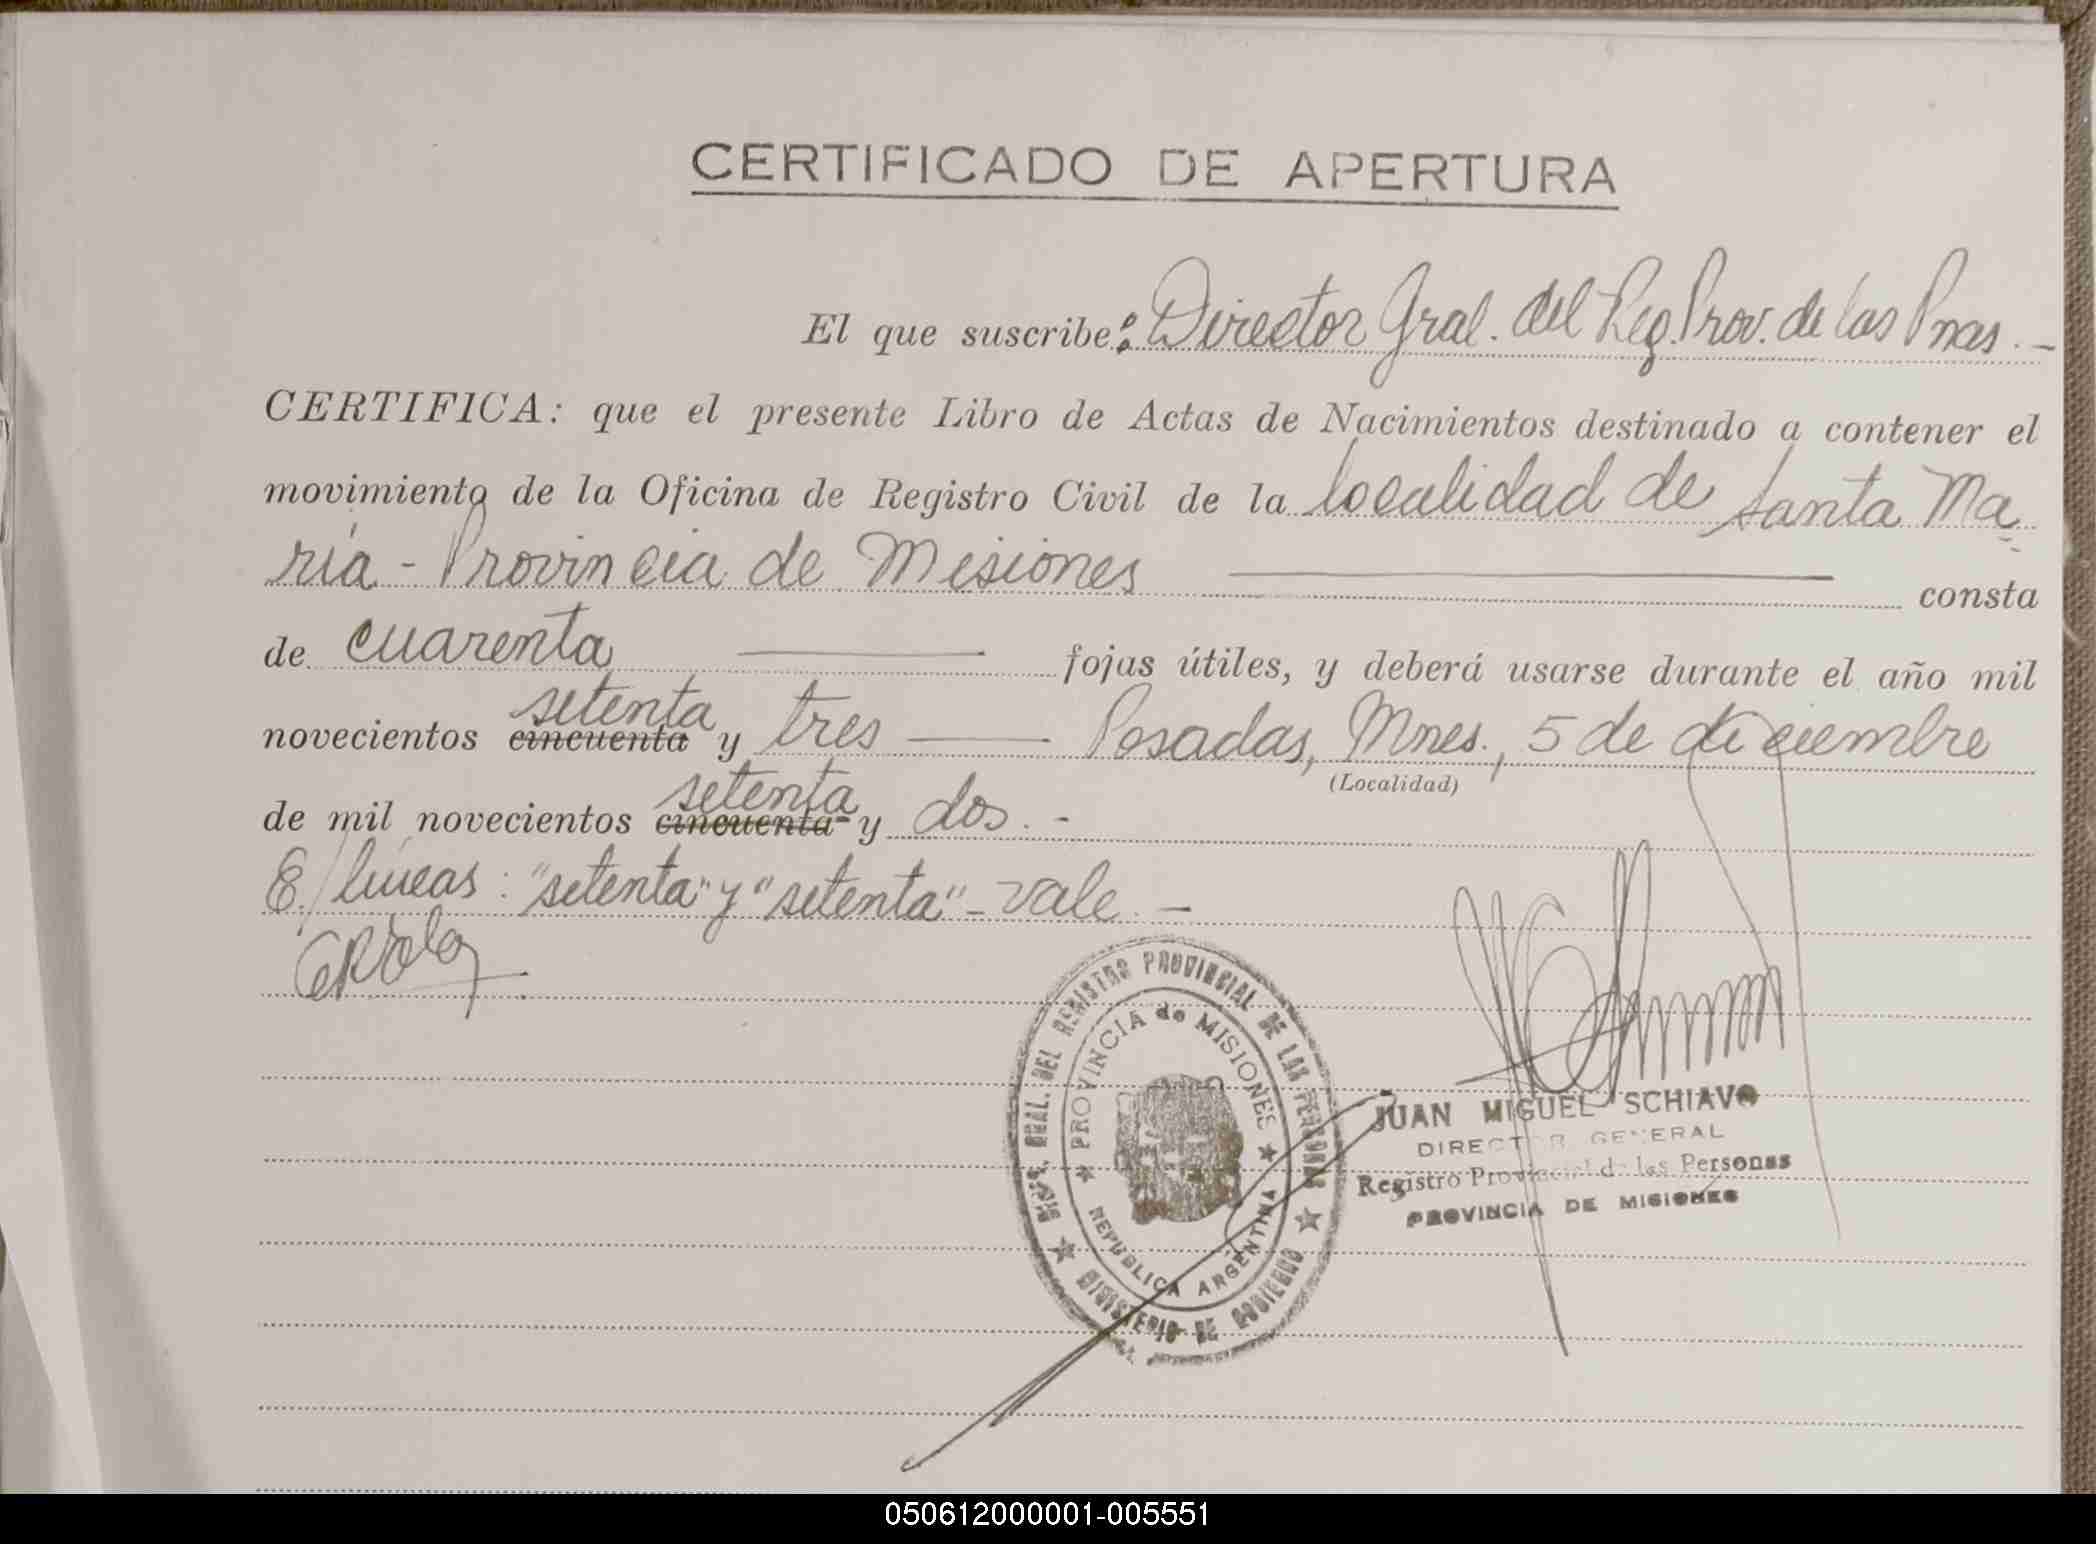 CERTIFICADO DE APERTURA
El que suscribe: Director Gral. del Reg. Prov. de las Pnas. -
CERTIFICA: que el presente Libro de Actas de Nacimientos destinado a contener el
movimiento de la Oficina de Registro Civil de la localidad de Santa Ma
ría - Provincia de Misiones consta
de cuarenta fojas útiles, y deberá usarse durante el año mil
setenta
novecientos cincuenta y tres Posadas, Mnes., 5 de diciembre
(Localidad)
setenta
de mil novecientos cincuenta y dos. -
E/líneas: "setenta" y "setenta" - vale. -
DIREC. GRAL. DEL REGISTRO PROVINCIAL DE LAS PERSONAS
PROVINCIA de MISIONES
REPUBLICA ARGENTINA
MINISTERIO DE GOBIERNO
JUAN MIGUEL SCHIAVO
DIRECTOR GENERAL
Registro Provincial de las Personas
PROVINCIA DE MISIONES
050612000001-005551